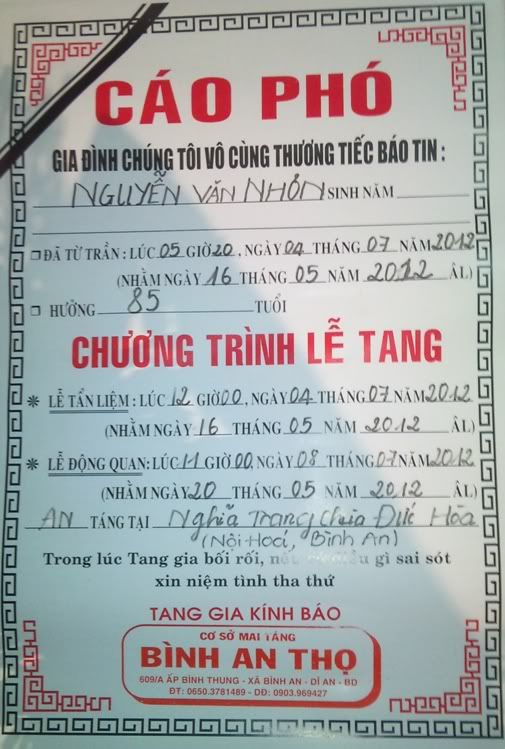 CÁO PHÓ
GIA ĐÌNH CHÚNG TÔI VÔ CÙNG THƯƠNG TIẾC BÁO TIN :
NGUYỄN VĂN NHỎN SINH NĂM
ĐÃ TỪ TRẦN : LÚC 05 GIỜ 20, NGÀY 04 THÁNG 07 NĂM 2012
(NHẰM NGÀY 16 THÁNG 05 NĂM 2012 ÂL)
HƯỞNG 85 TUỔI
CHƯƠNG TRÌNH LỄ TANG
* LỄ TẨN LIỆM : LÚC 12 GIỜ 00, NGÀY 04 THÁNG 07 NĂM 2012
(NHẰM NGÀY 16 THÁNG 05 NĂM 2012 ÂL)
* LỄ ĐỘNG QUAN: LÚC 11 GIỜ 00, NGÀY 08 THÁNG 07 NĂM 2012
(NHẰM NGÀY 20 THÁNG 05 NĂM 2012 ÂL)
AN TÁNG TẠI Nghĩa Trang Chùa Đức Hòa
(Nội Hoá, Bình An)
Trong lúc Tang gia bối rối, điều gì sai sót
xin niệm tình tha thứ
TANG GIA KÍNH BÁO
CƠ SỞ MAI TÁNG
BÌNH AN THỌ
609/A ẤP BÌNH THUNG - XÃ BÌNH AN - DĨ AN - BD
ĐT: 0650.3781489 - DĐ: 0903.969427